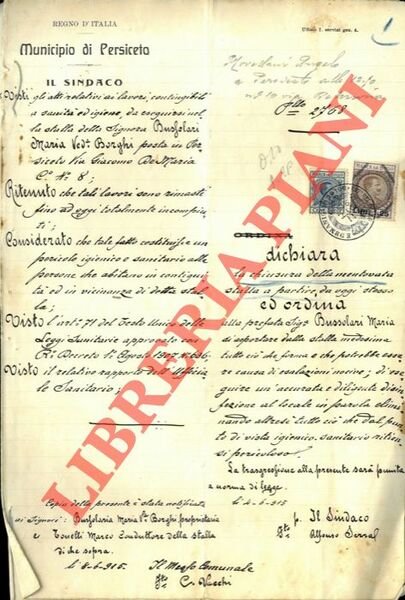 REGNO D'ITALIA
Ufficio I. servizi gen. 4.
1
Municipio di Persiceto
IL SINDACO
Visti gli atti relativi ai lavori contingibili
di sanità ed igiene, da eseguirsi nel-
la stalla della Signora Bussolari
Maria Ved.ª Borghi posta in Per-
siceto Via Giacomo De Maria
C° N° 8;
Ritenuto che tali lavori sono rimasti
fino ad oggi totalmente incompiu-
ti;
Considerato che tale fatto costituisce un
pericolo igienico e sanitario alle
persone che abitano in contigui-
tà ed in vicinanza di detta stal-
la;
Visto l'art. 71 del Testo Unico delle
Leggi Sanitarie approvato con
R. Decreto 1° Agosto 1907 N° 636;
Visto il relativo rapporto dell'Ufficia-
le Sanitario;
Angelo
2768
ORDINA
dichiara
la chiusura della mentovata
stalla a partire da oggi stesso
ed ordina
alla prefata Sig.ª Bussolari Maria
di asportare dalla stalla medesima
tutto ciò che forma e che potrebbe esse-
re causa di esalazioni nocive; di ese-
guire un'accurata e diligente disin-
fezione al locale in parola elimi-
nando altresì tutto ciò che dal pun-
to di vista igienico sanitario ritien-
si pericoloso.
La trasgressione alla presente sarà punita
a norma di legge.
li 4-6-915
p. Il Sindaco
Alfonso
Copia della presente è stata notificata
ai Signori: Bussolari Maria V. Borghi, proprietaria
e Tonelli Marco Conduttore della stalla
di che sopra.
li 8-6-915. Il Messo Comunale
C. Vecchi
LIBRERIA PIANI